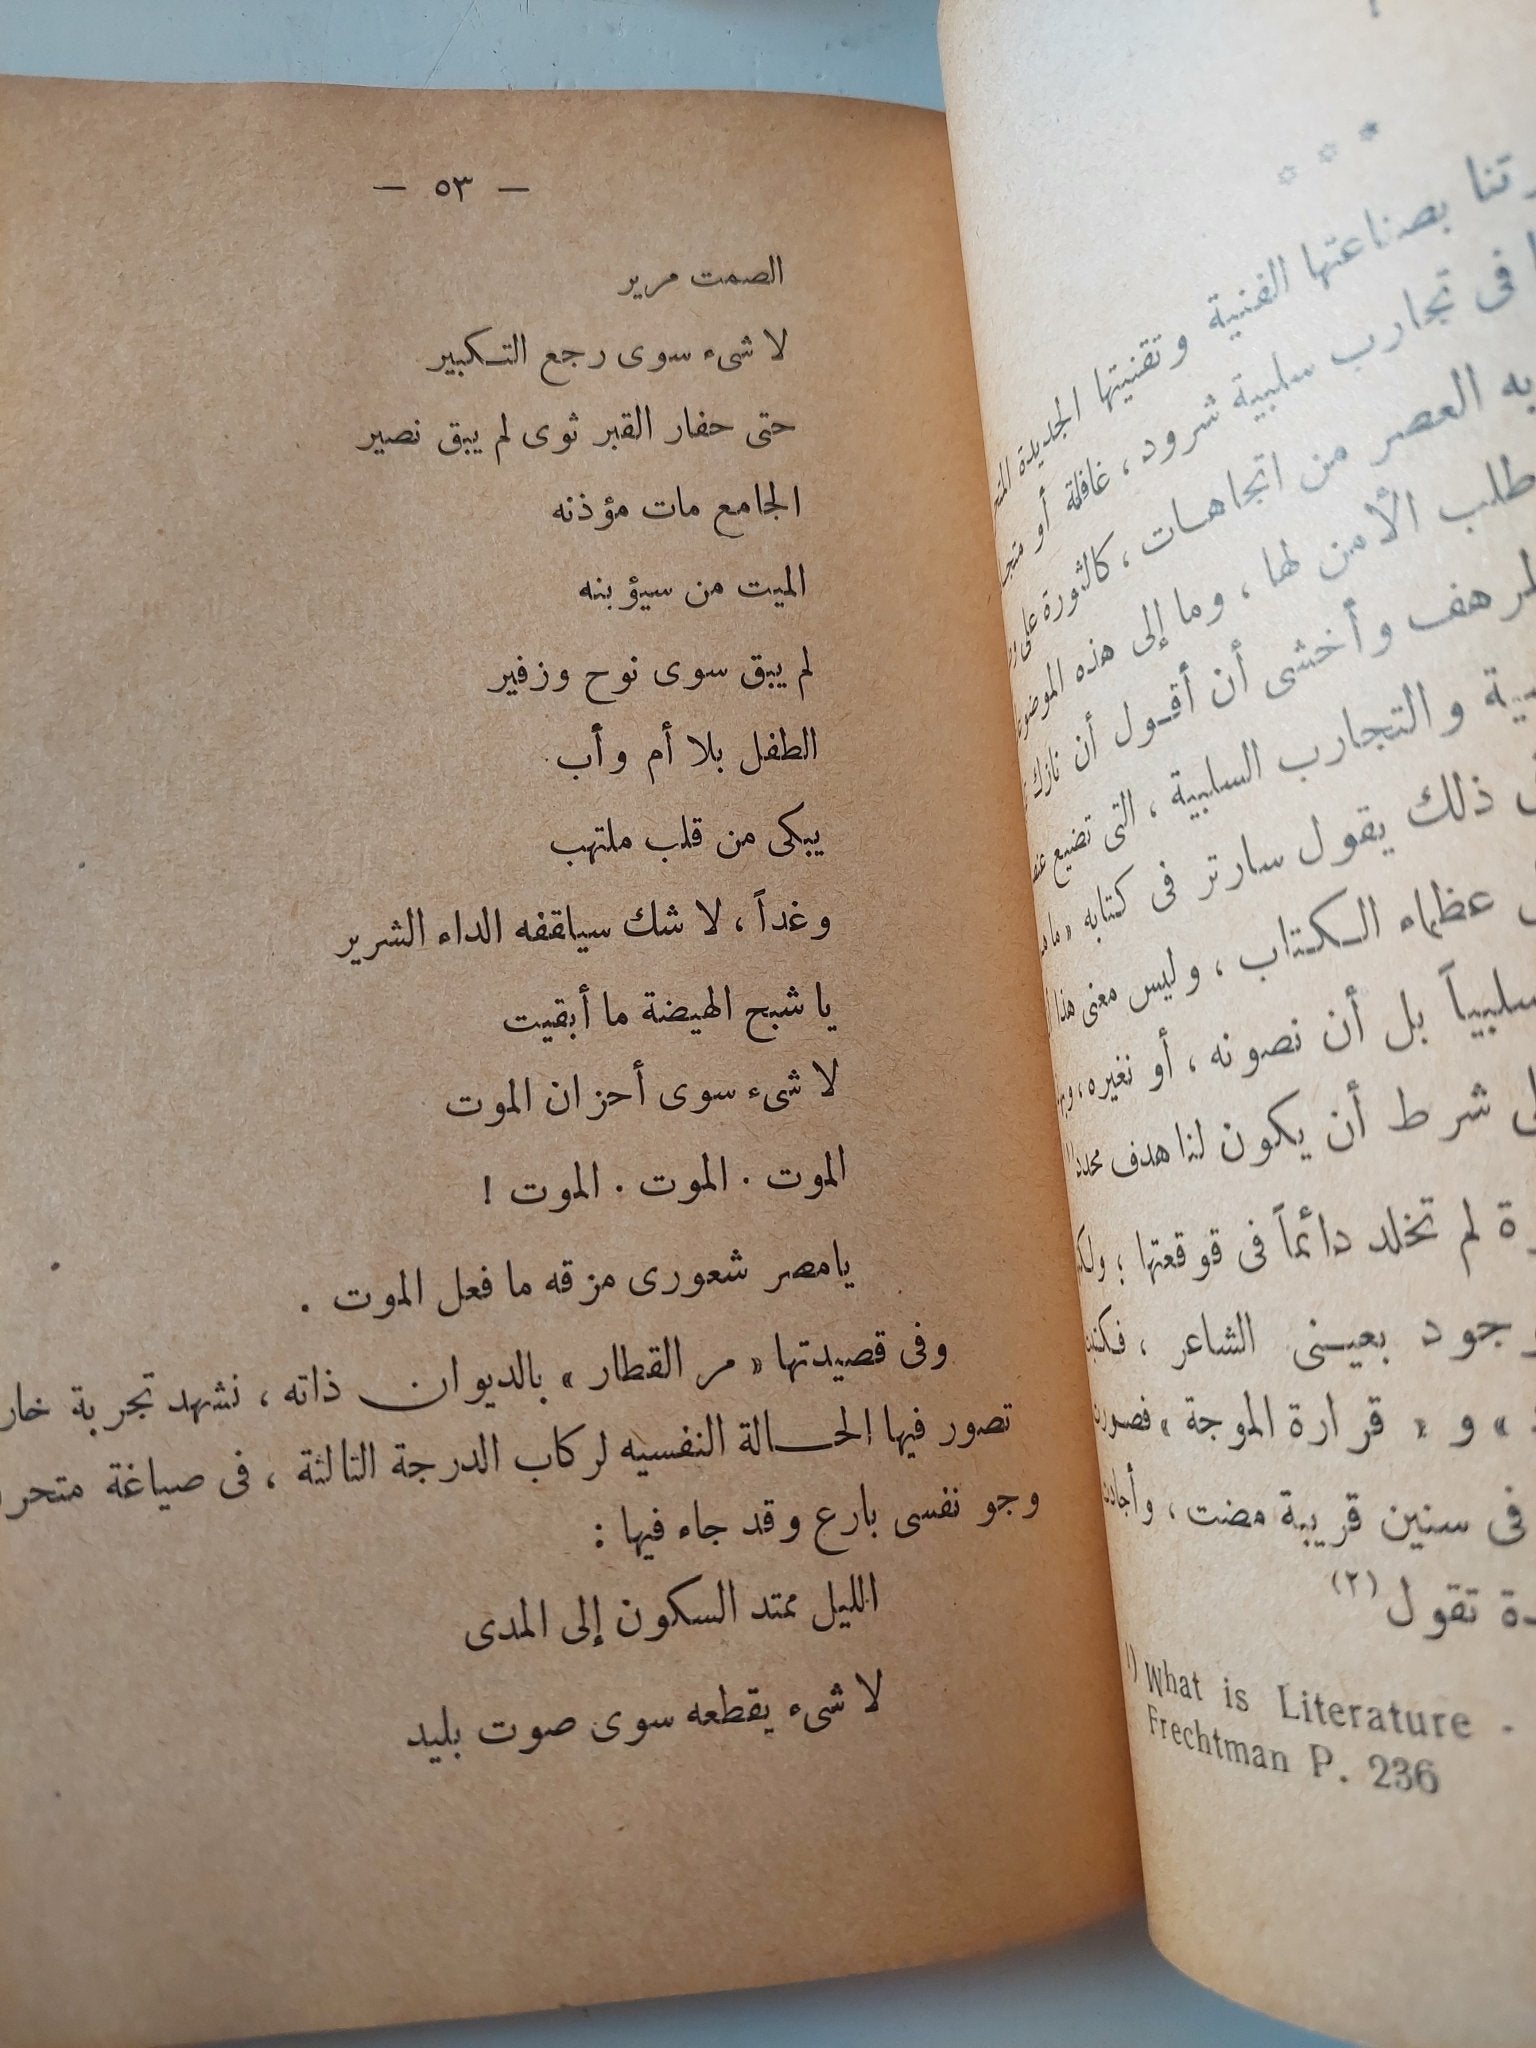 رتنا بصناعتها الفنية وتقنيتها الجديدة
فى تجارب سلبية شرود ، غافلة أو
به العصر من اتجاهات ، كالثورة على
طلب الأمن لها ، وما إلى هذه
المرهف وأخشى أن أقول أن نازك
ية والتجارب السلبية ، التى تضيع
ذلك يقول سارتر فى كتابه « ما
عظماء الكتاب ، وليس معنى هذا
سلبياً بل أن نصونه ، أو نغيره ،
شرط أن يكون لنا هدف محدد
ة لم تخلد دائماً فى قوقعتها ؛
جود بعينى الشاعر ،
» و « قرارة الموجة »
فى سنين قريبة مضت ،
دة تقول (٢)
1) What is Literature -
Frechtman P. 236
— ٥٣ —
الصمت مرير
لا شىء سوى رجع التكبير
حتى حفار القبر ثوى لم يبق نصير
الجامع مات مؤذنه
الميت من سيؤبنه
لم يبق سوى نوح وزفير
الطفل بلا أم وأب
يبكى من قلب ملتهب
وغداً ، لا شك سياقفه الداء الشرير
يا شبح الهيضة ما أبقيت
لا شىء سوى أحزان الموت
الموت . الموت . الموت !
يامصر شعورى مزقه ما فعل الموت .
وفى قصيدتها « مر القطار » بالديوان ذاته ، نشهد تجربة
تصور فيها الحالة النفسيه لركاب الدرجة الثالثة ، فى صياغة
وجو نفسى بارع وقد جاء فيها :
الليل ممتد السكون إلى المدى
لا شىء يقطعه سوى صوت بليد